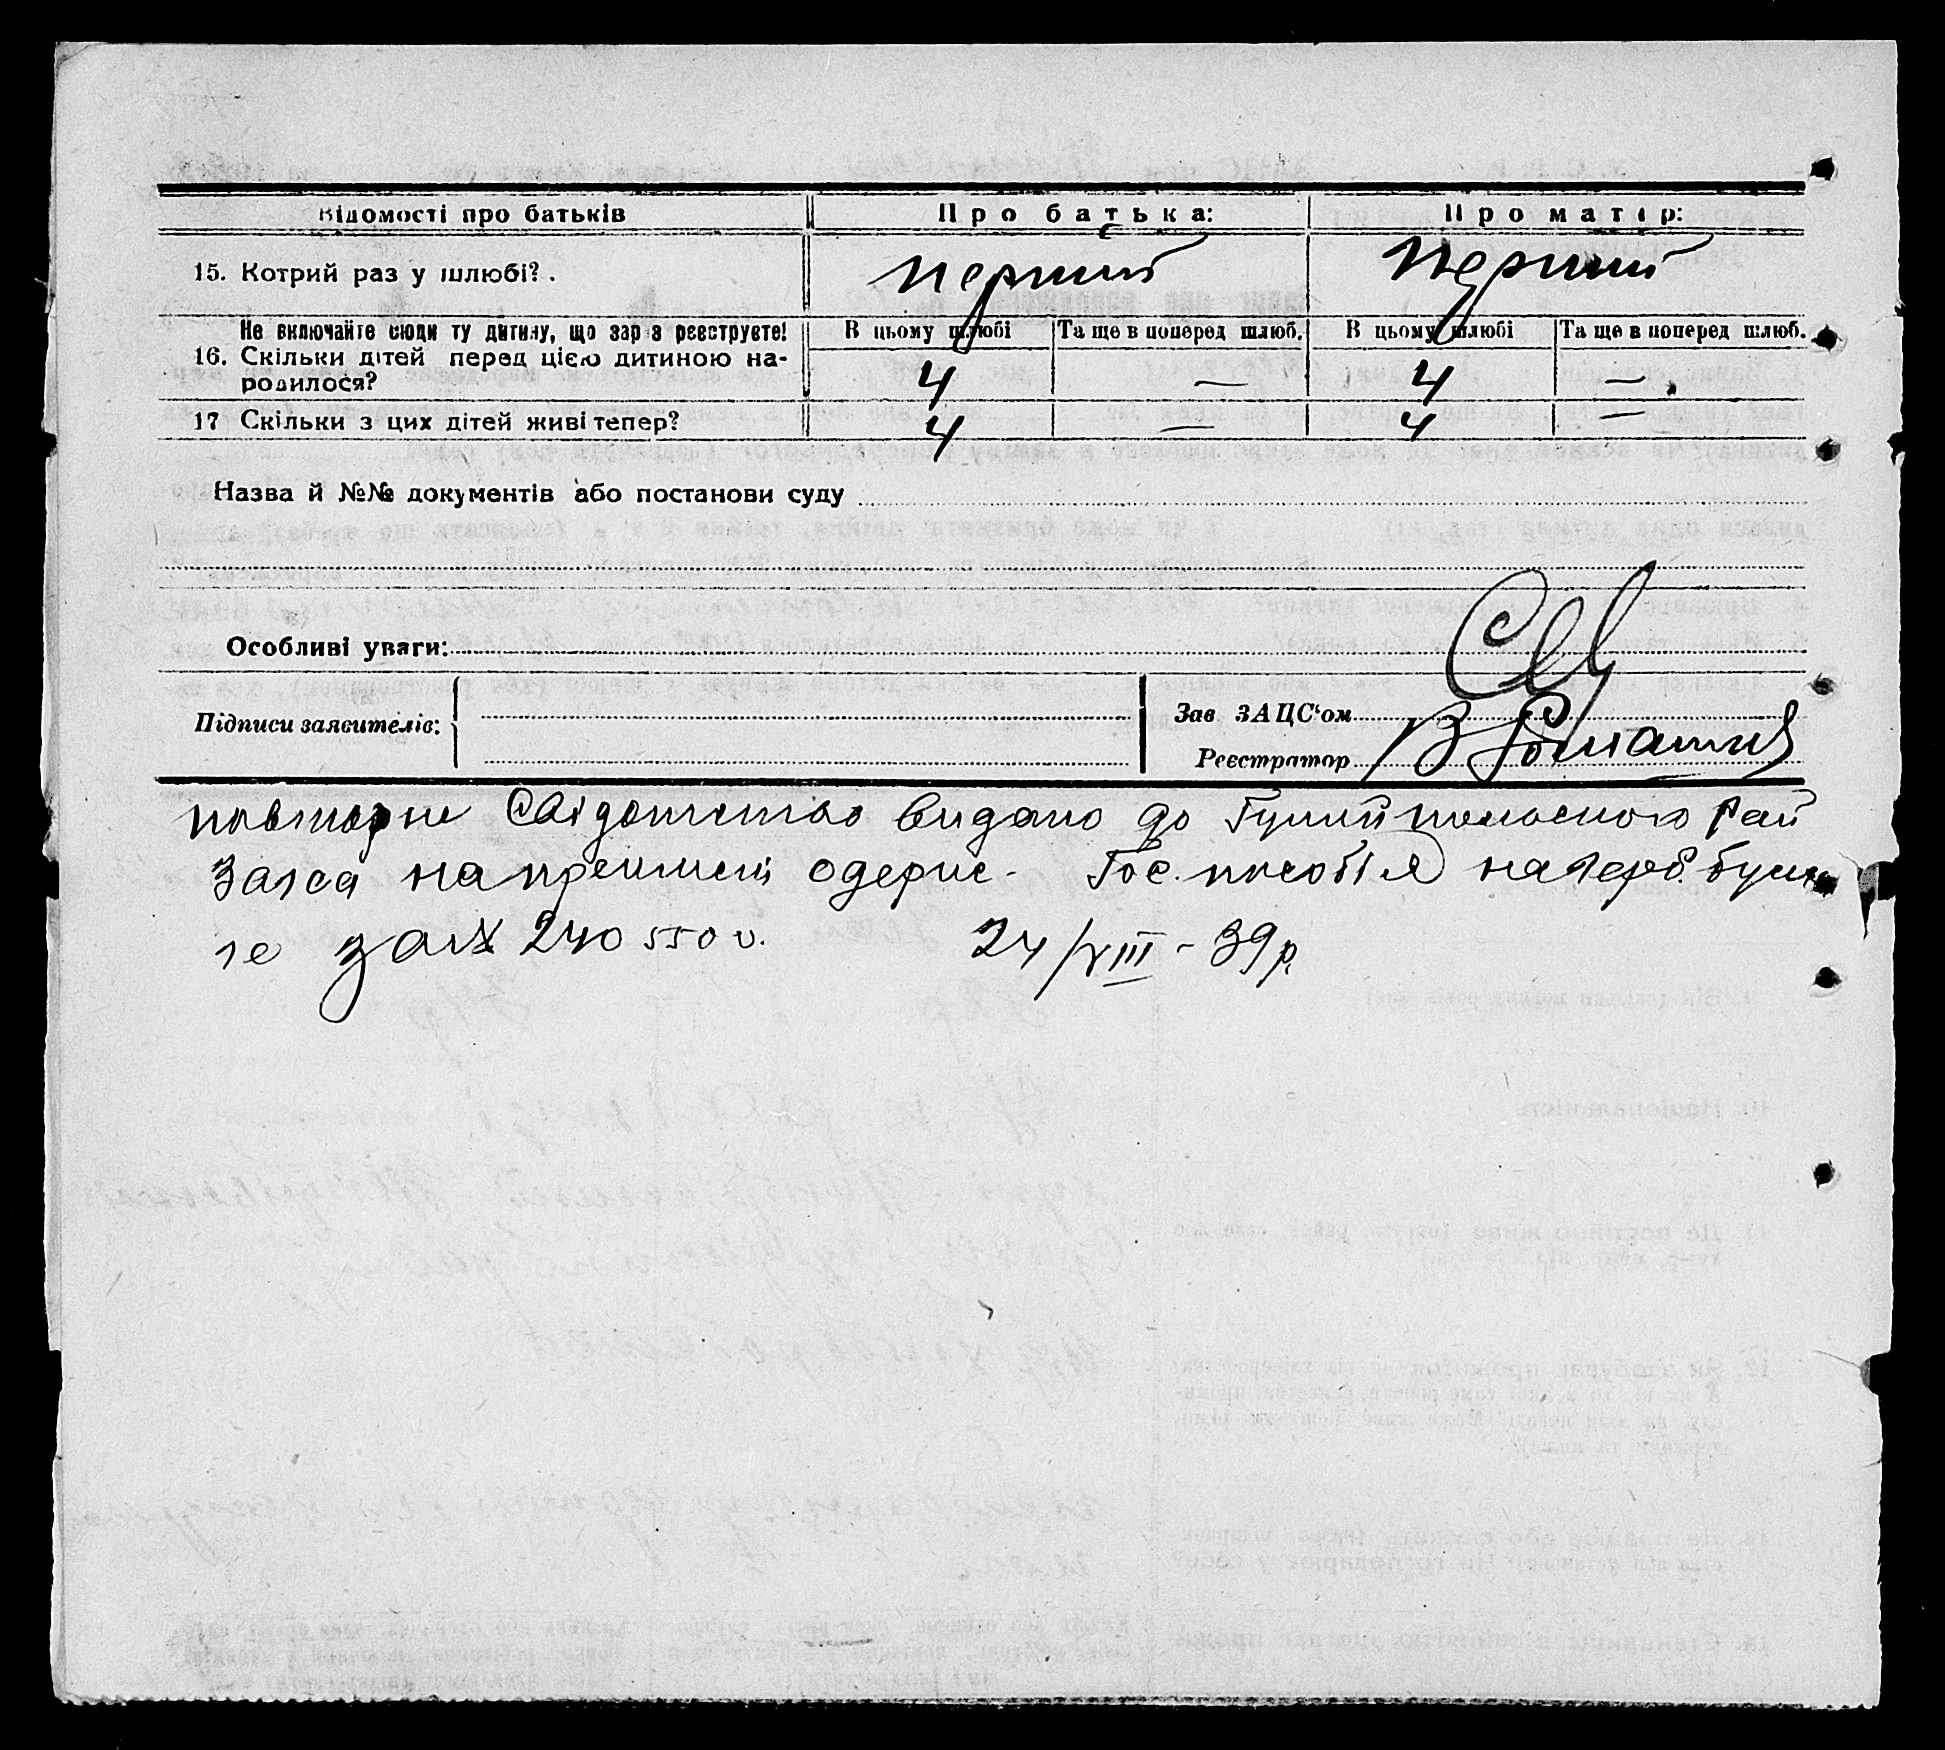 Відомості про батьків Про батька: Про матір:
15. Котрий раз у шлюбі? . перший перший
Не включайте сюди ту дитину, що зараз реєструєте! В цьому шлюбі Та ще в поперед шлюб. В цьому шлюбі Та ще в поперед шлюб.
16. Скільки дітей перед цією дитиною на-
родилося? 4 — 4 —
17 Скільки з цих дітей живі тепер? 4 — 4 —
Назва й №№ документів або постанови суду
Особливі уваги:
Підписи заявителів: Зав ЗАЦС'ом
Реєстратор В
повторне Свідотство видано до Гуляйпольського Рай
Загса на одерж. Гос. пособія на герб. бума
ге за № 240550 24/VIII - 39 р.